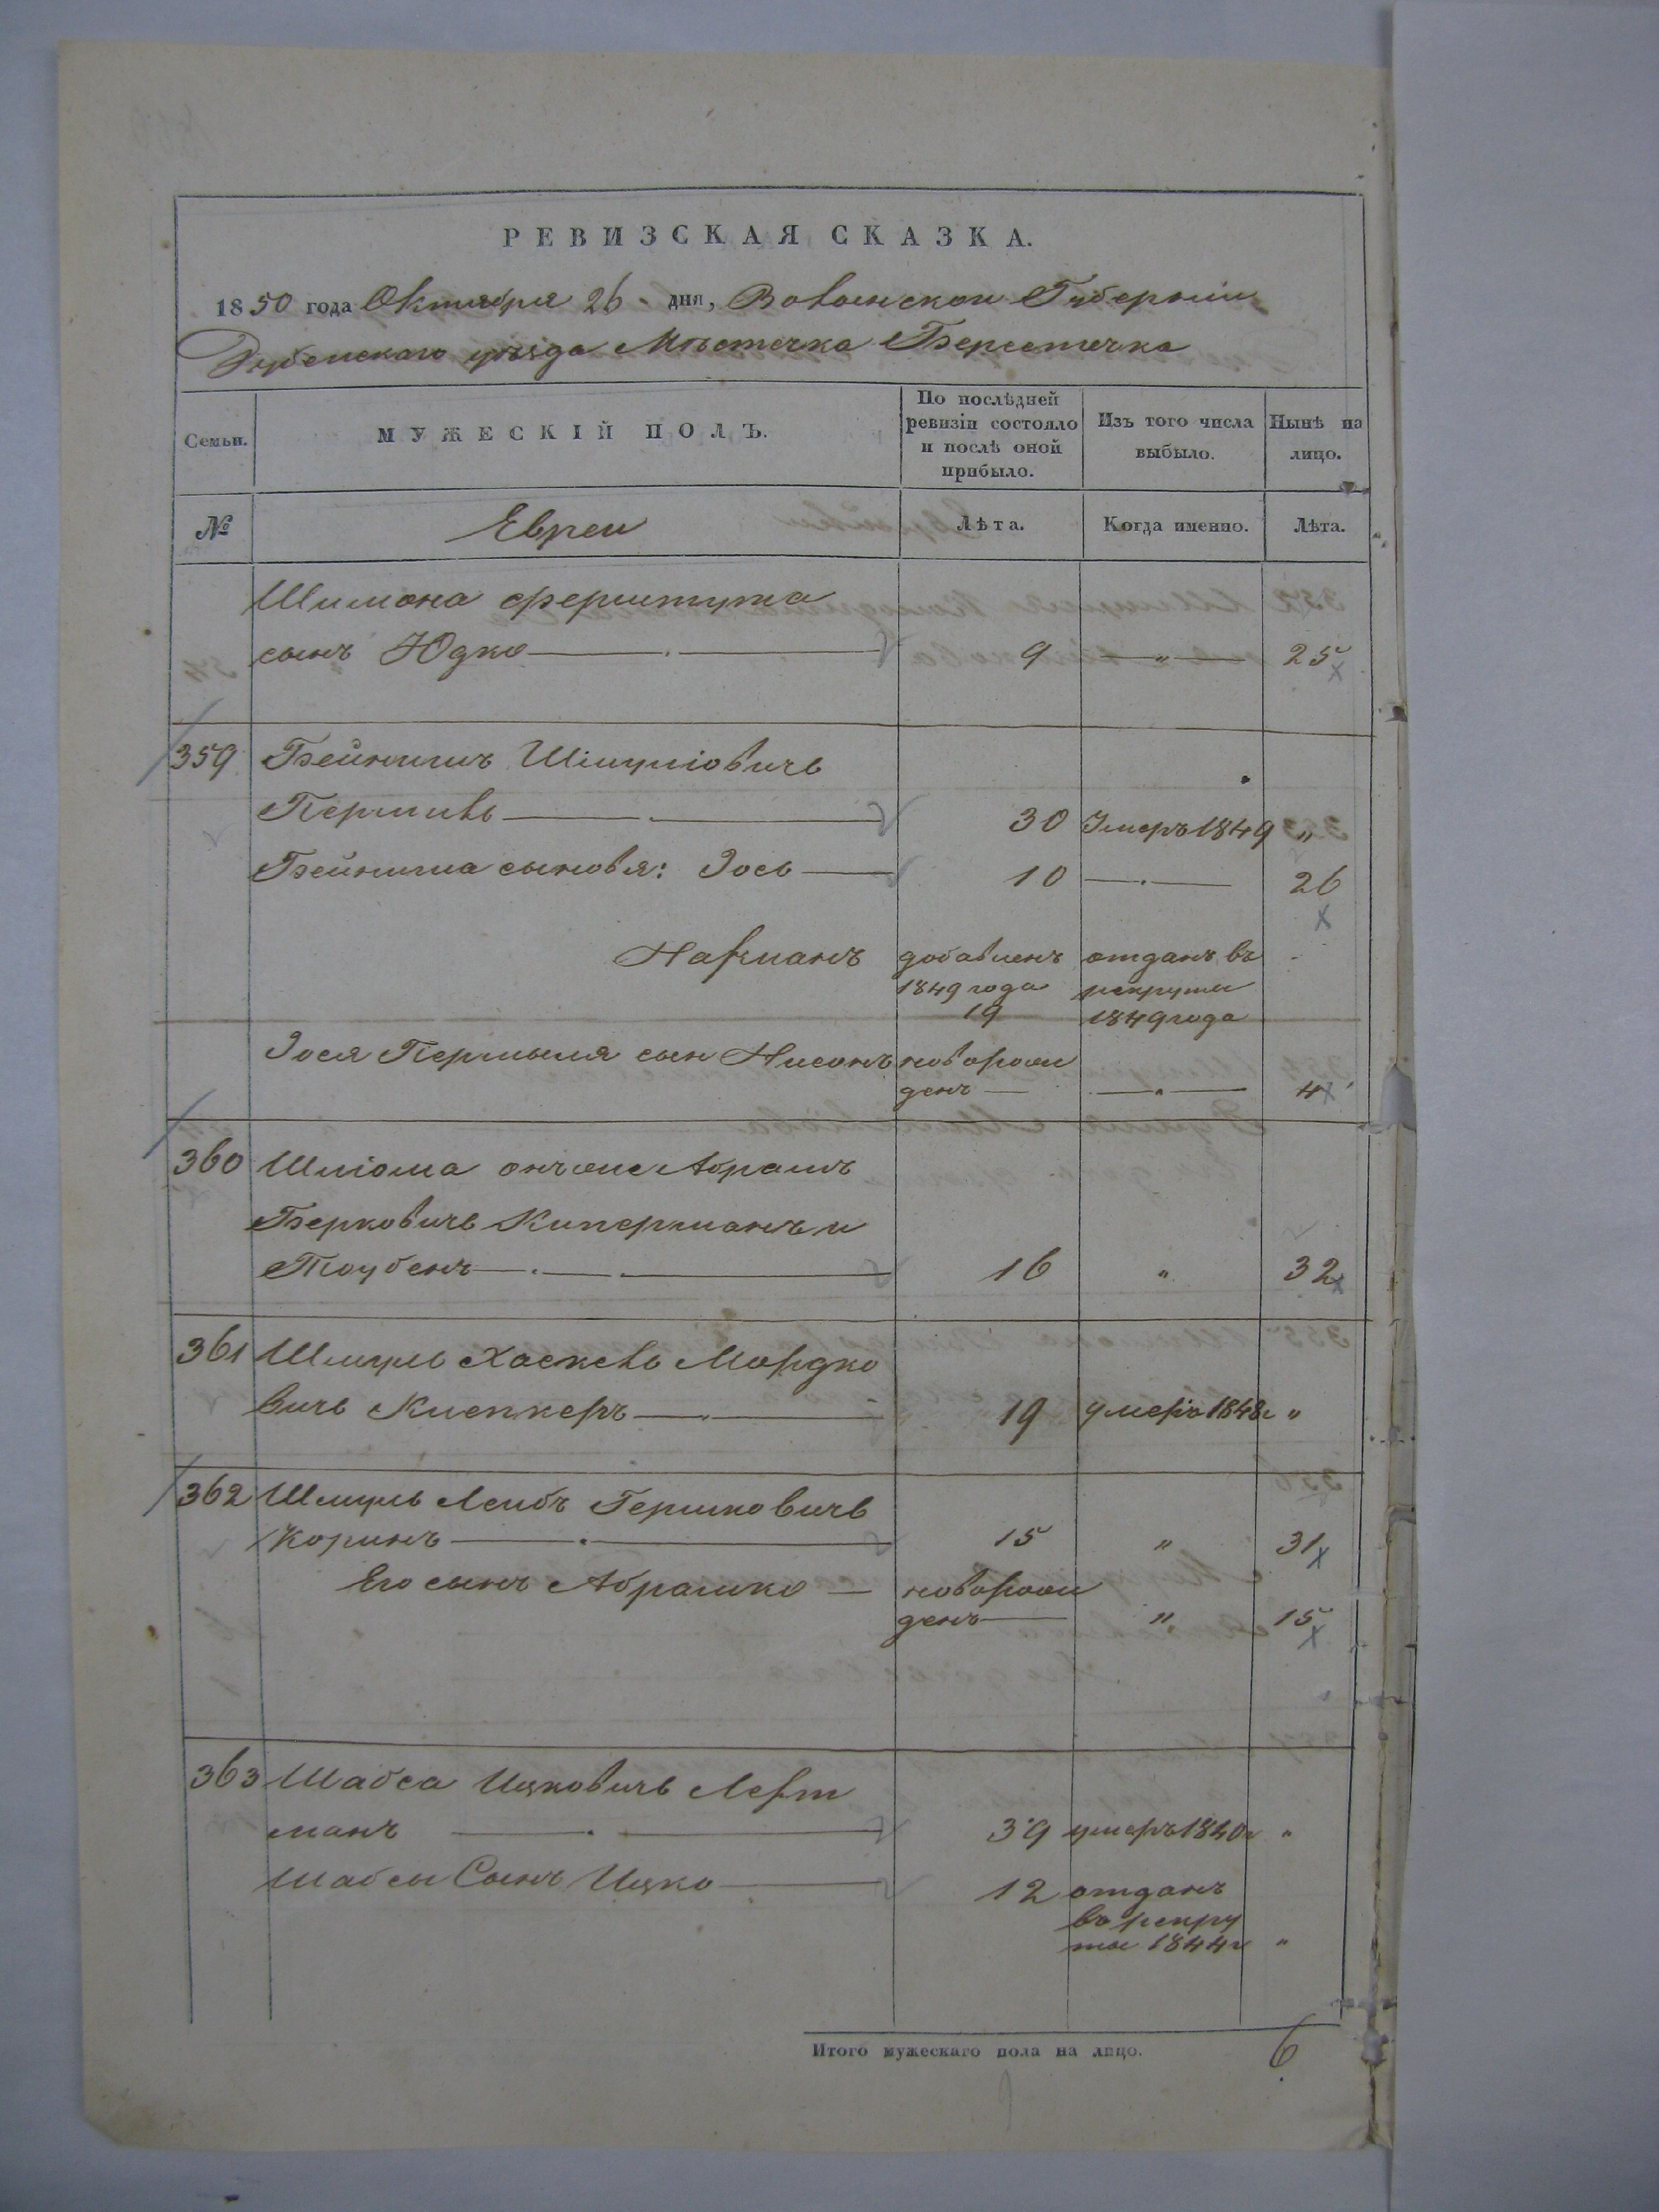 РЕВИЗСКАЯ СКАЗКА.
1850 года Октября 26 дня, Волынской Губерніи
Дубенскаго уѣзда Мѣстечка Берестечка
Семьи.
МУЖЕСКІЙ ПОЛЪ.
По послѣдней ревизіи состояло и послѣ оной прибыло.
Изъ того числа выбыло.
Нынѣ на лицо.
№ Евреи Лѣта. Когда именно. Лѣта.
Шимона
сынъ Юдко 9 " 25
359 Бейнишъ Шмуліовичъ
Пермиль 30 Умеръ 1849 "
Бейниша сыновья: Іось 10 26
Нахманъ добавленъ отданъ въ
1849 года рекруты
19 1849 года
Іося Пермыля сын Нисонъ новорож
денъ 4
360 Шліома онъ же Абрамъ
Берковичъ Киперманъ и
Тоубенъ 16 " 32
361 Шмуль Хаскель Мордко
вичъ 19 умеръ 1848г "
362 Шмуль Леибъ Гершковичъ
Коринъ 15 " 31
Его сынъ Абрашко новорож
денъ " 15
363 Шабса Ицковичъ Лерт
манъ 39 умеръ 1840г "
Шабсы Сынъ Ицко 12 отданъ
въ рекру
ты 1844г "
Итого мужескаго пола на лицо. 6